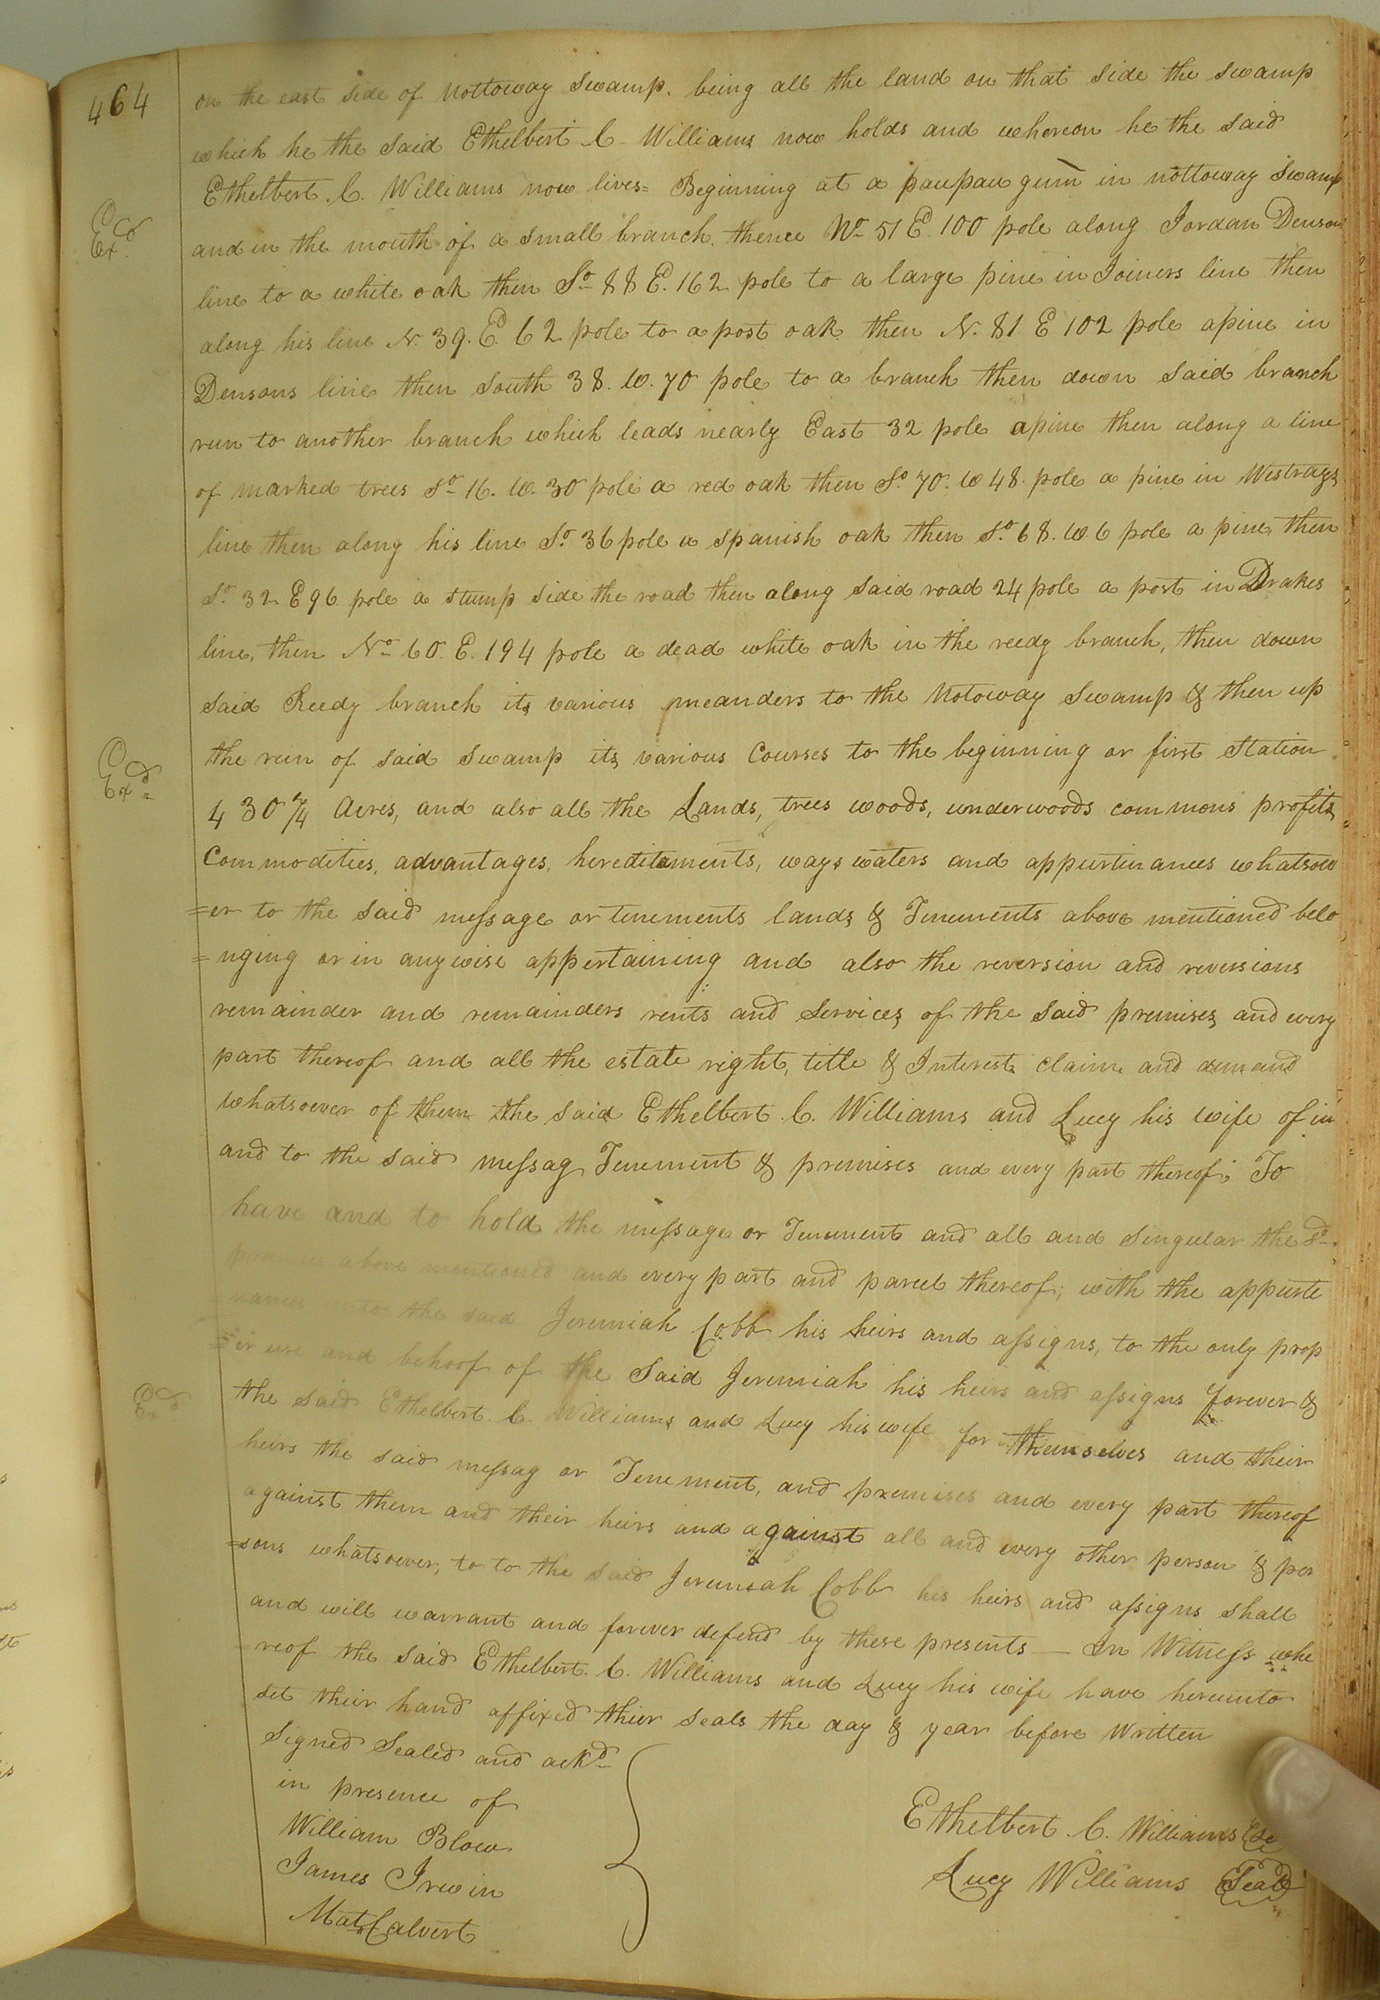 464
on the east side of Nottoway Swamp. being all the land on that side the swamp
which he the said Ethelbert C. Williams now holds and whereon he the said
Ethelbert. C. Williams now lives= Beginning at a paupau gum in nottoway Swamp
Exd.
and in the mouth of a small branch. thence No 51 E. 100 pole along Jordan Densons
line to a white oak then So 88 E. 162 pole to a large pine in Joiners line then
along his line N. 39. E. 62 pole to a post oak then N. 81. E 102 pole apine in
Densons line then South 38. W. 70 pole to a branch then down said branch
run to another branch which leads nearly East 32 pole apine then along a line
of marked trees So 16. W. 30 pole a red oak then So 70. W 48 pole a pine in Westrays
line then along his line So 36 pole a spanish oak then So. 68. W. 6 pole a pine then
So 32 E 96 pole a stump side the road then along said road 24 pole a post in Drakes
line, then No 60. E. 194 pole a dead white oak in the reedy branch, then down
said Reedy branch its various meanders to the Notoway Swamp & then up
the run of said swamp its various Courses to the beginning or first Station
Exd
430 Acres, and also all the Lands, trees woods, underwoods commons profits,
Commodities, advantages, hereditaments, ways waters and appurtinances whatsoev
=er to the said message or tenements lands & Tenements above mentioned belo
=nging or in anywise appertaining and also the reversion and reversions
remainder and remainders rents and Services of the said premises and every
part thereof and all the estate right, title & Interest claim and demand
whatsoever of them the said Ethelbert. C. Williams and Lucy his wife of in
and to the said messag Tenement & premises and every part thereof; To
have and to hold the message or Tenement and all and Singular the sd.
premises above mentioned and every part and parcel thereof; with the appurte
nances unto the said Jeremiah Cobb his heirs and assigns, to the only prop
=er use and behoof of the Said Jeremiah his heirs and assigns forever &
Exd
the said Ethelbert. C. Williams and Lucy his wife for themselves and their
heirs the said messag or Tenement, and premises and every part thereof
against them and their heirs and against all and every other person & per
=sons whatsoever, to to the said Jeremiah Cobb his heirs and assigns shall
and will warrant and forever defend by these presents — In Witness whe
reof the said Ethelbert. C. Williams and Lucy his wife have hereunto
set their hand affixed thier seals the day & year before Written
Signed Sealed and ackd
in presence of
William Blow
James Irwin
Mat. Calvert
Ethelbert. C. Williams
Lucy Williams Seal